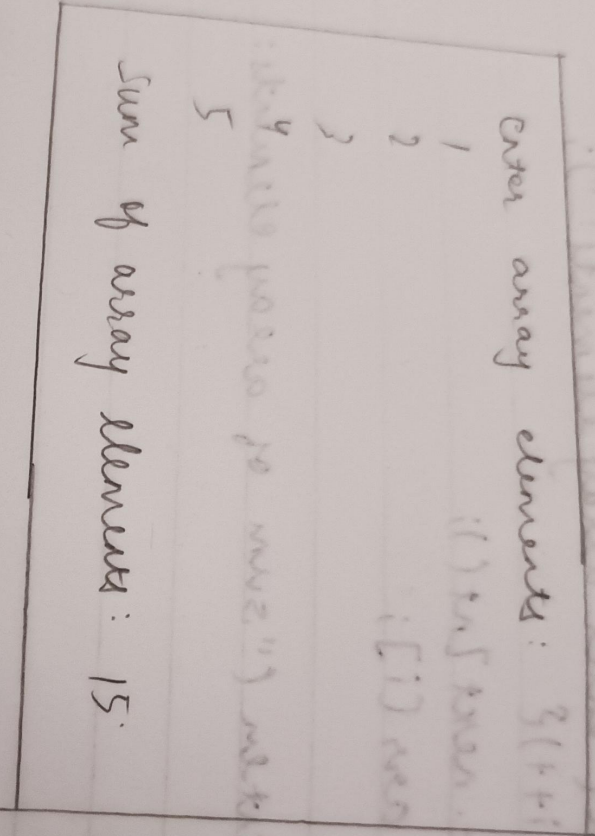 Enter array elements:
1
2
3
4
5
Sum of array elements: 15